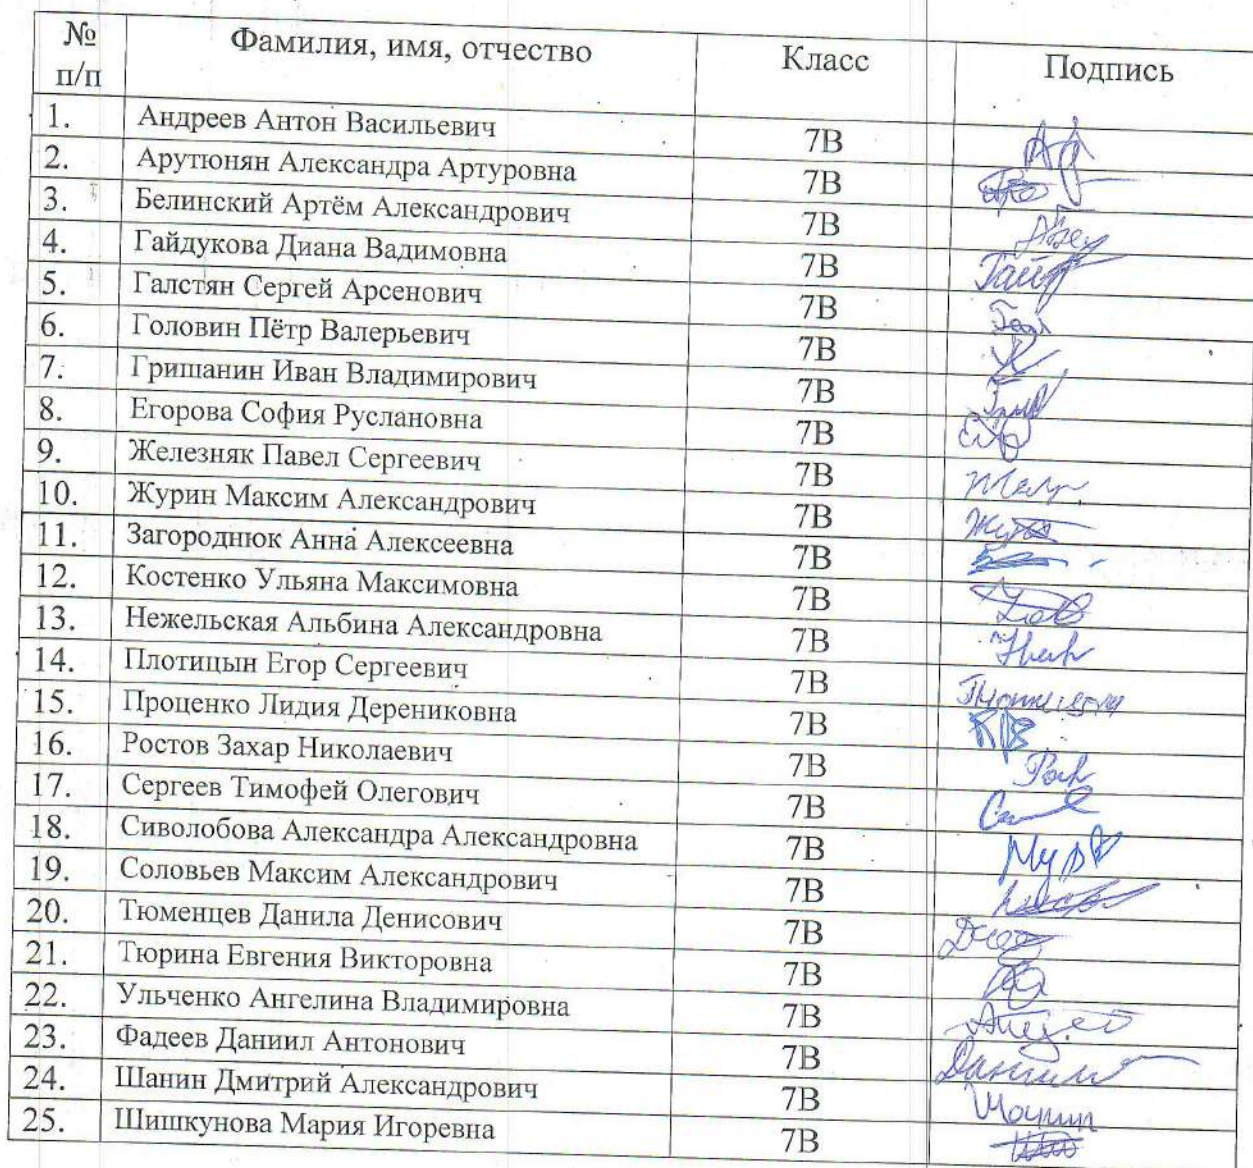 № п/п Фамилия, имя, отчество Класс Подпись
1. Андреев Антон Васильевич 7В
2. Арутюнян Александра Артуровна 7В
3. Белинский Артём Александрович 7В
4. Гайдукова Диана Вадимовна 7В
5. Галстян Сергей Арсенович 7В
6. Головин Пётр Валерьевич 7В
7. Гришанин Иван Владимирович 7В
8. Егорова София Руслановна 7В
9. Железняк Павел Сергеевич 7В
10. Журин Максим Александрович 7В
11. Загороднюк Анна Алексеевна 7В
12. Костенко Ульяна Максимовна 7В
13. Нежельская Альбина Александровна 7В
14. Плотицын Егор Сергеевич 7В
15. Проценко Лидия Дерениковна 7В
16. Ростов Захар Николаевич 7В
17. Сергеев Тимофей Олегович 7В
18. Сиволобова Александра Александровна 7В
19. Соловьев Максим Александрович 7В
20. Тюменцев Данила Денисович 7В
21. Тюрина Евгения Викторовна 7В
22. Ульченко Ангелина Владимировна 7В
23. Фадеев Даниил Антонович 7В
24. Шанин Дмитрий Александрович 7В
25. Шишкунова Мария Игоревна 7В